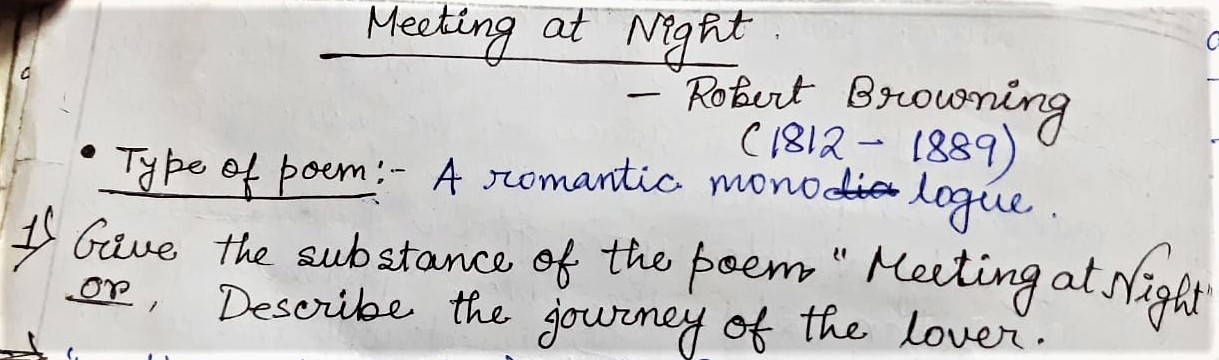 Meeting at Night.
- Robert Browning
(1812 - 1889)
• Type of poem:- A romantic monodia logue.
1) Give the substance of the poem "Meeting at Night"
or, Describe the journey of the lover.